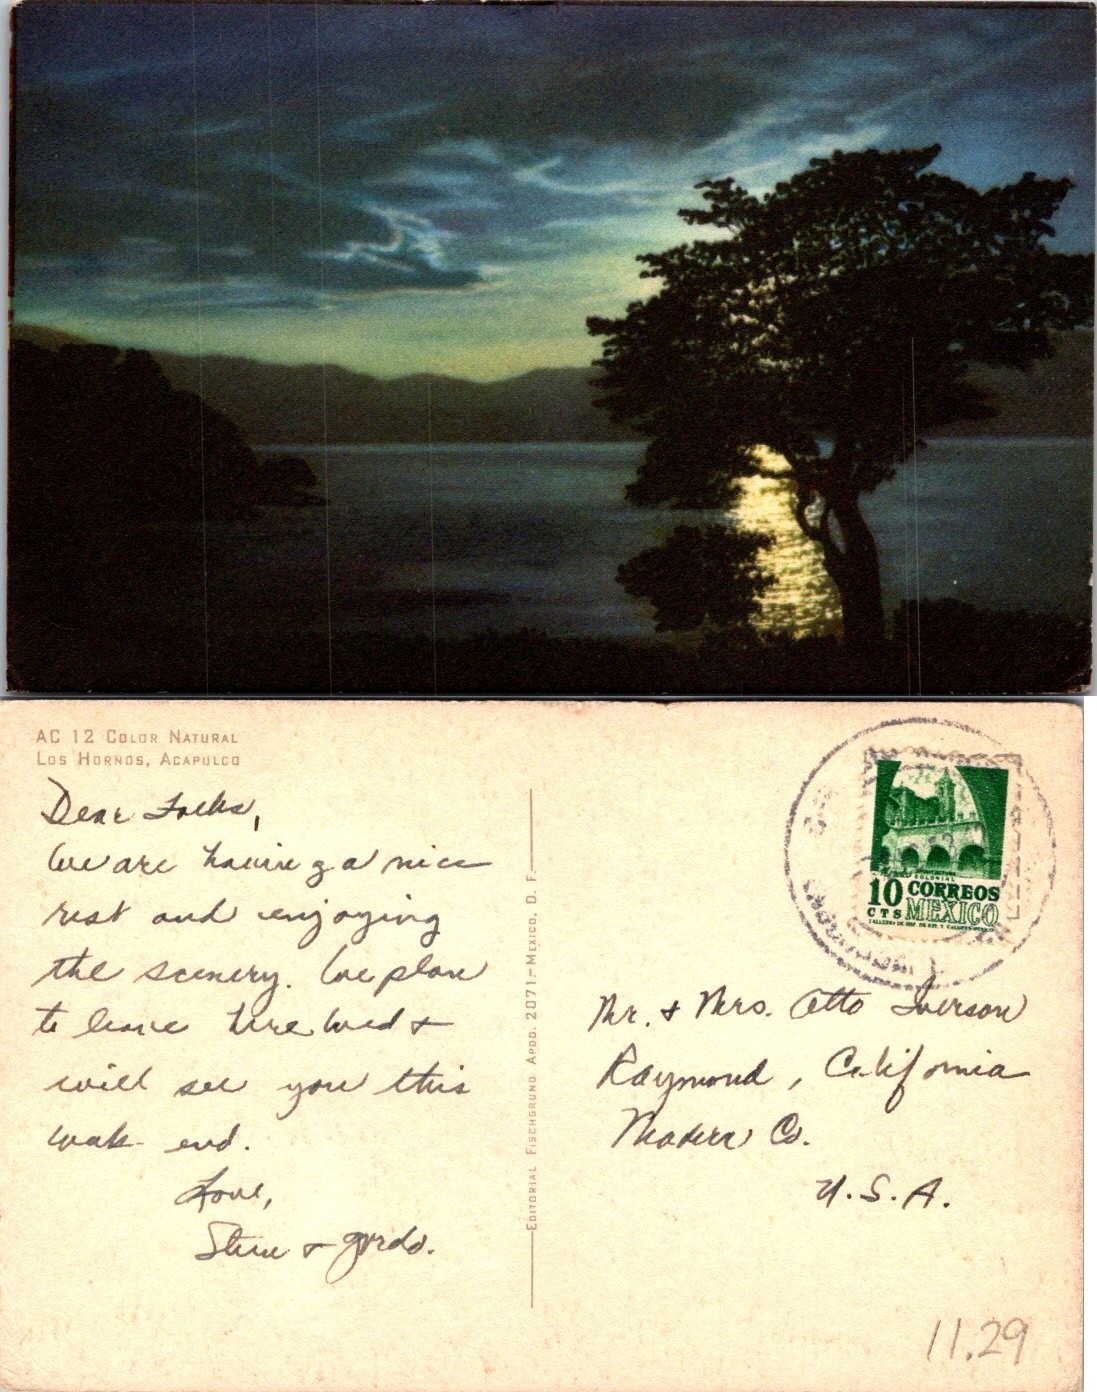 AC 12 COLOR NATURAL
LOS HORNOS, ACAPULCO
Dear Folks,
We are having a nice
rest and enjoying
the scenery. We plan
to leave here Wed +
will see you this
week-end.
Love,
+
EDITORIAL FISCHGRUND APDO. 2071-MEXICO, D. F.
COLONIAL
10 CORREOS
CTS MEXICO
Mr. + Mrs. Otto Iverson
Raymond, California
Madera Co.
U.S.A.
11.29